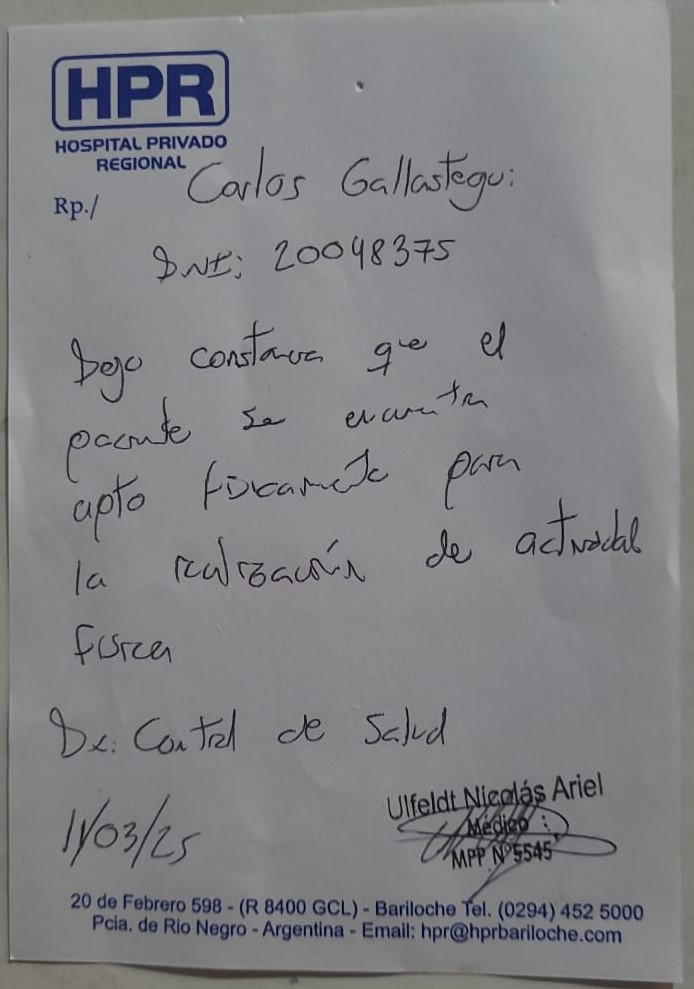 HPR
HOSPITAL PRIVADO
REGIONAL
Rp./
Carlos Gallastegui
DNI: 20048375
Dejo constancia que el
paciente se encuentra
apto fisicamente para
la realización de actividad
fisica
Dx: Control de Salud
11/03/25
Ulfeldt Nicolás Ariel
Médico
MPP Nº 5545
20 de Febrero 598 - (R 8400 GCL) - Bariloche Tel. (0294) 452 5000
Pcia. de Rio Negro - Argentina - Email: hpr@hprbariloche.com